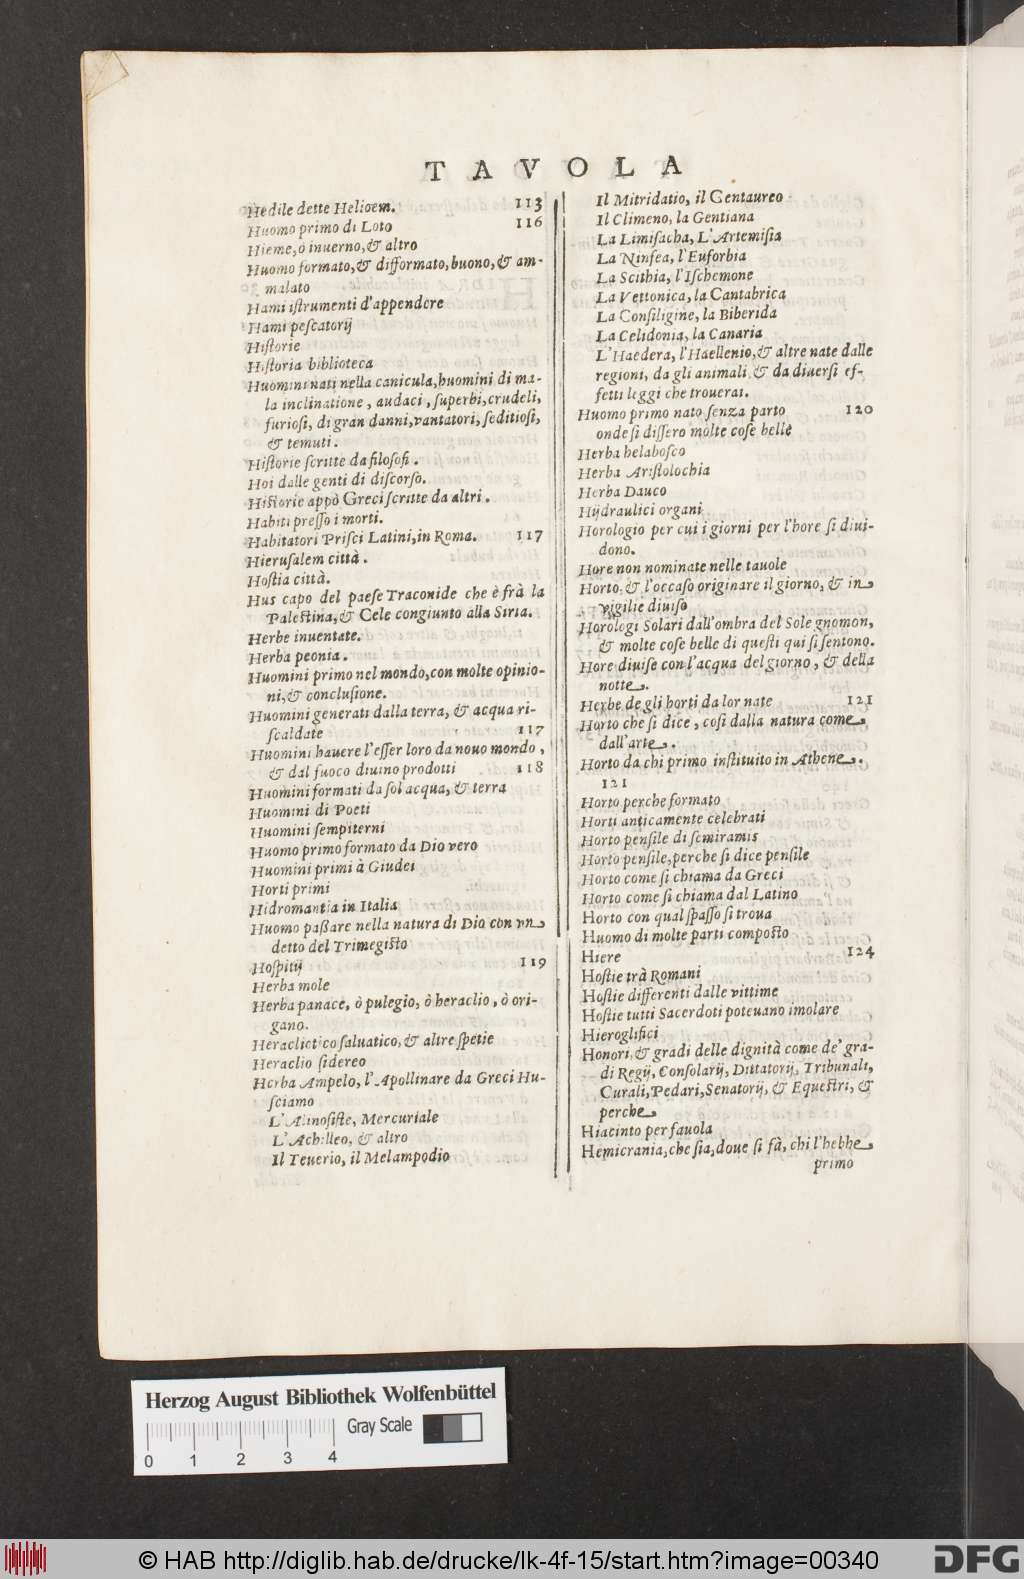 TAVOLA
Hedile dette Helioem. 113
Huomo primo di Loto 116
Hieme, ò inuerno, & altro
Huomo formato, & difformato, buono, & am-
malato
Hami iſtrumenti d'appendere
Hami peſcatorij
Hiſtorie
Hiſtoria biblioteca
Huomini nati nella canicula, huomini di ma-
la inclinatione, audaci, ſuperbi, crudeli,
furioſi, di gran danni, vantatori, ſeditioſi,
& temuti.
Hiſtorie ſcritte da filoſofi.
Hoi dalle genti di diſcorſo.
Hiſtorie appò Greci ſcritte da altri.
Habiti preſſo i morti.
Habitatori Priſci Latini, in Roma. 117
Hieruſalem città.
Hoſtia città.
Hus capo del paeſe Traconide che è frà la
Paleſtina, & Cele congiunto alla Siria.
Herbe inuentate.
Herba peonia.
Huomini primo nel mondo, con molte opinio-
ni, & concluſione.
Huomini generati dalla terra, & acqua ri-
ſcaldate 117
Huomini hauere l'eſſer loro da nouo mondo,
& dal fuoco diuino prodotti 118
Huomini formati da ſol acqua, & terra
Huomini di Poeti
Huomini ſempiterni
Huomo primo formato da Dio vero
Huomini primi à Giudei
Horti primi
Hidromantia in Italia
Huomo paßare nella natura di Dio con vn
detto del Trimegiſto
Hoſpitij 119
Herba mole
Herba panace, ò pulegio, ò heraclio, ò ori-
gano.
Heracliotico ſaluatico, & altre ſpetie
Heraclio ſidereo
Herba Ampelo, l'Apollinare da Greci Hu-
ſciamo
L'Alinoſiſte, Mercuriale
L'Achilleo, & altro
Il Teuerio, il Melampodio
Il Mitridatio, il Gentaureo
Il Climeno, la Gentiana
La Limiſacha, L'Artemiſia
La Ninfea, l'Euforbia
La Scithia, l'Iſchemone
La Vettonica, la Cantabrica
La Conſiligine, la Biberida
La Celidonia, la Canaria
L'Haedera, l'Haellenio, & altre nate dalle
regioni, da gli animali & da diuerſi ef-
fetti leggi che trouerai.
Huomo primo nato ſenza parto 120
onde ſi diſſero molte coſe belle
Herba helaboſco
Herba Ariſtolochia
Herba Dauco
Hydraulici organi
Horologio per cui i giorni per l'hore ſi diui-
dono.
Hore non nominate nelle tauole
Horto, & l'occaſo originare il giorno, & in
vigilie diuiſo
Horologi Solari dall'ombra del Sole gnomon,
& molte coſe belle di queſti qui ſi ſentono.
Hore diuiſe con l'acqua del giorno, & della
notte.
Herbe de gli horti da lor nate 121
Horto che ſi dice, coſi dalla natura come
dall'arte.
Horto da chi primo inſtituito in Athene.
121
Horto perche formato
Horti anticamente celebrati
Horto penſile di ſemiramis
Horto penſile, perche ſi dice penſile
Horto come ſi chiama da Greci
Horto come ſi chiama dal Latino
Horto con qual ſpaſſo ſi troua
Huomo di molte parti compoſto
Hiere 124
Hoſtie trà Romani
Hoſtie differenti dalle vittime
Hoſtie tutti Sacerdoti poteuano imolare
Hieroglifici
Honori, & gradi delle dignità come de' gra-
di Regij, Conſolarij, Dittatorij, Tribunali,
Curali, Pedari, Senatorij, & Equeſtri, &
perche
Hiacinto per fauola
Hemicrania, che ſia, doue ſi fà, chi l'hebbe
primo
Herzog August Bibliothek Wolfenbüttel
Gray Scale
0 1 2 3 4
© HAB http://diglib.hab.de/drucke/lk-4f-15/start.htm?image=00340
DFG